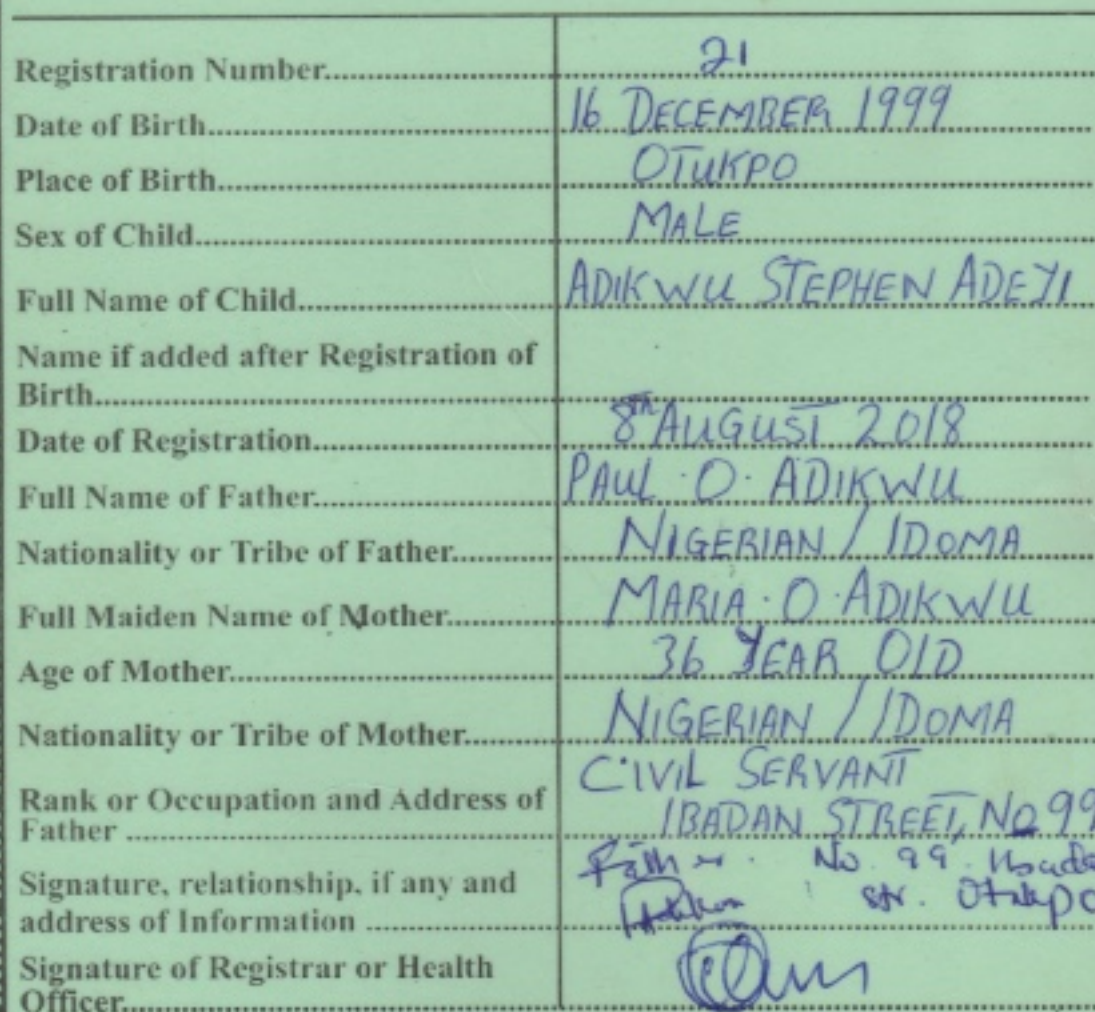 Registration Number 21
Date of Birth 16 DECEMBER 1999
Place of Birth OTUKPO
Sex of Child MALE
Full Name of Child ADIKWU STEPHEN ADEYI
Name if added after Registration of
Birth
Date of Registration 8TH AUGUST 2018
Full Name of Father PAUL·O·ADIKWU
Nationality or Tribe of Father NIGERIAN / IDOMA
Full Maiden Name of Mother MARIA·O·ADIKWU
Age of Mother 36 YEAR OLD
Nationality or Tribe of Mother NIGERIAN / IDOMA
CIVIL SERVANT
Rank or Occupation and Address of
Father IBADAN STREET, NO 99
Father. No. 99.
Signature, relationship, if any and str. Otukpo
address of Information
Signature of Registrar or Health
Officer